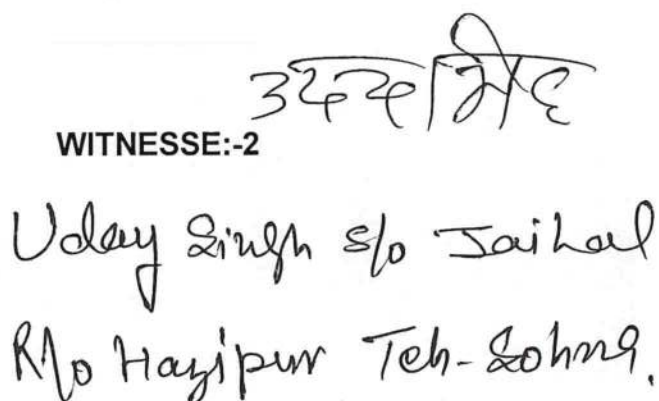 उदय सिंह
WITNESSE:-2
Uday Singh s/o Jailal
R/o Hazipur Teh-Sohna.